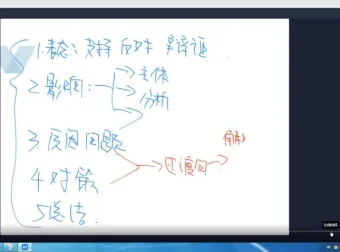 1.表态：支持 反对 辩证
2影响：→主体
→分析
3原因问题
→过渡句→
4对策
5总结